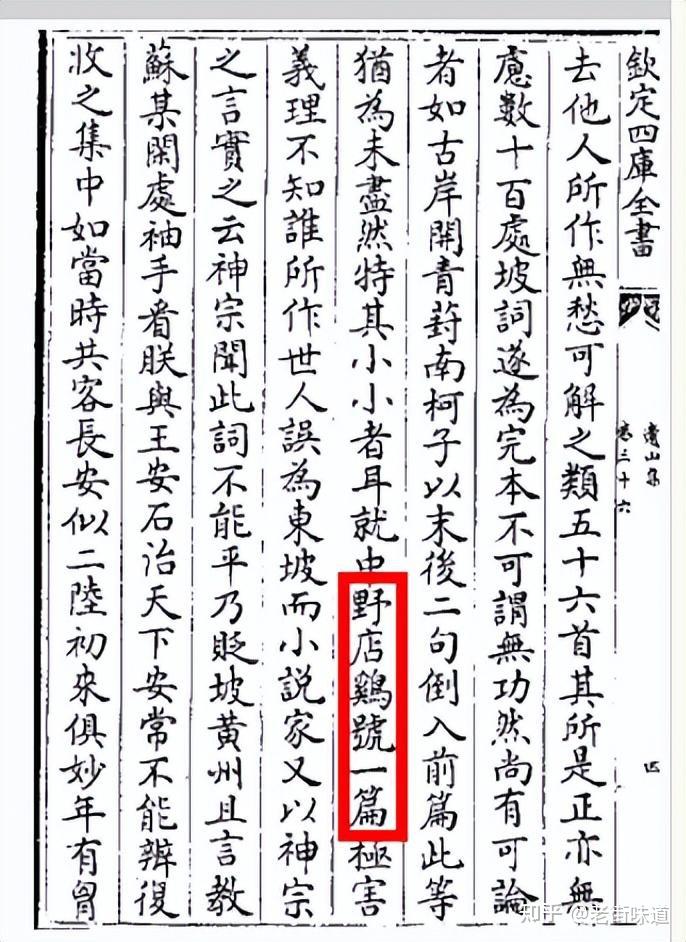 欽定四庫全書
遺山集
卷三十六
四
去他人所作無愁可解之類五十六首其所是正亦無
慮數十百處坡詞遂為完本不可謂無功然尚有可論
者如古岸開青葑南柯子以末後二句倒入前篇此等
猶為未盡然特其小小者耳就中野店鷄號一篇極害
義理不知誰所作世人誤為東坡而小説家又以神宗
之言實之云神宗聞此詞不能平乃貶坡黃州且言教
蘇某閑處袖手看朕與王安石治天下安常不能辨復
收之集中如當時共客長安似二陸初來俱妙年有胷
知乎 @老街味道